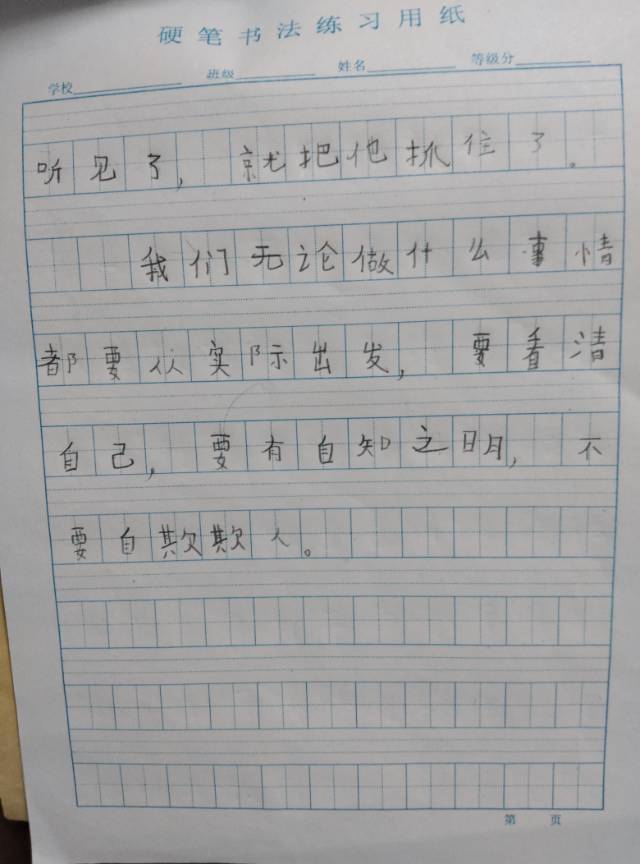 硬笔书法练习用纸
学校 班级 姓名 等级分
听见了，就把他抓住了。
我们无论做什么事情
都要从实际出发，要看清
自己，要有自知之明，不
要自欺欺人。
第 页